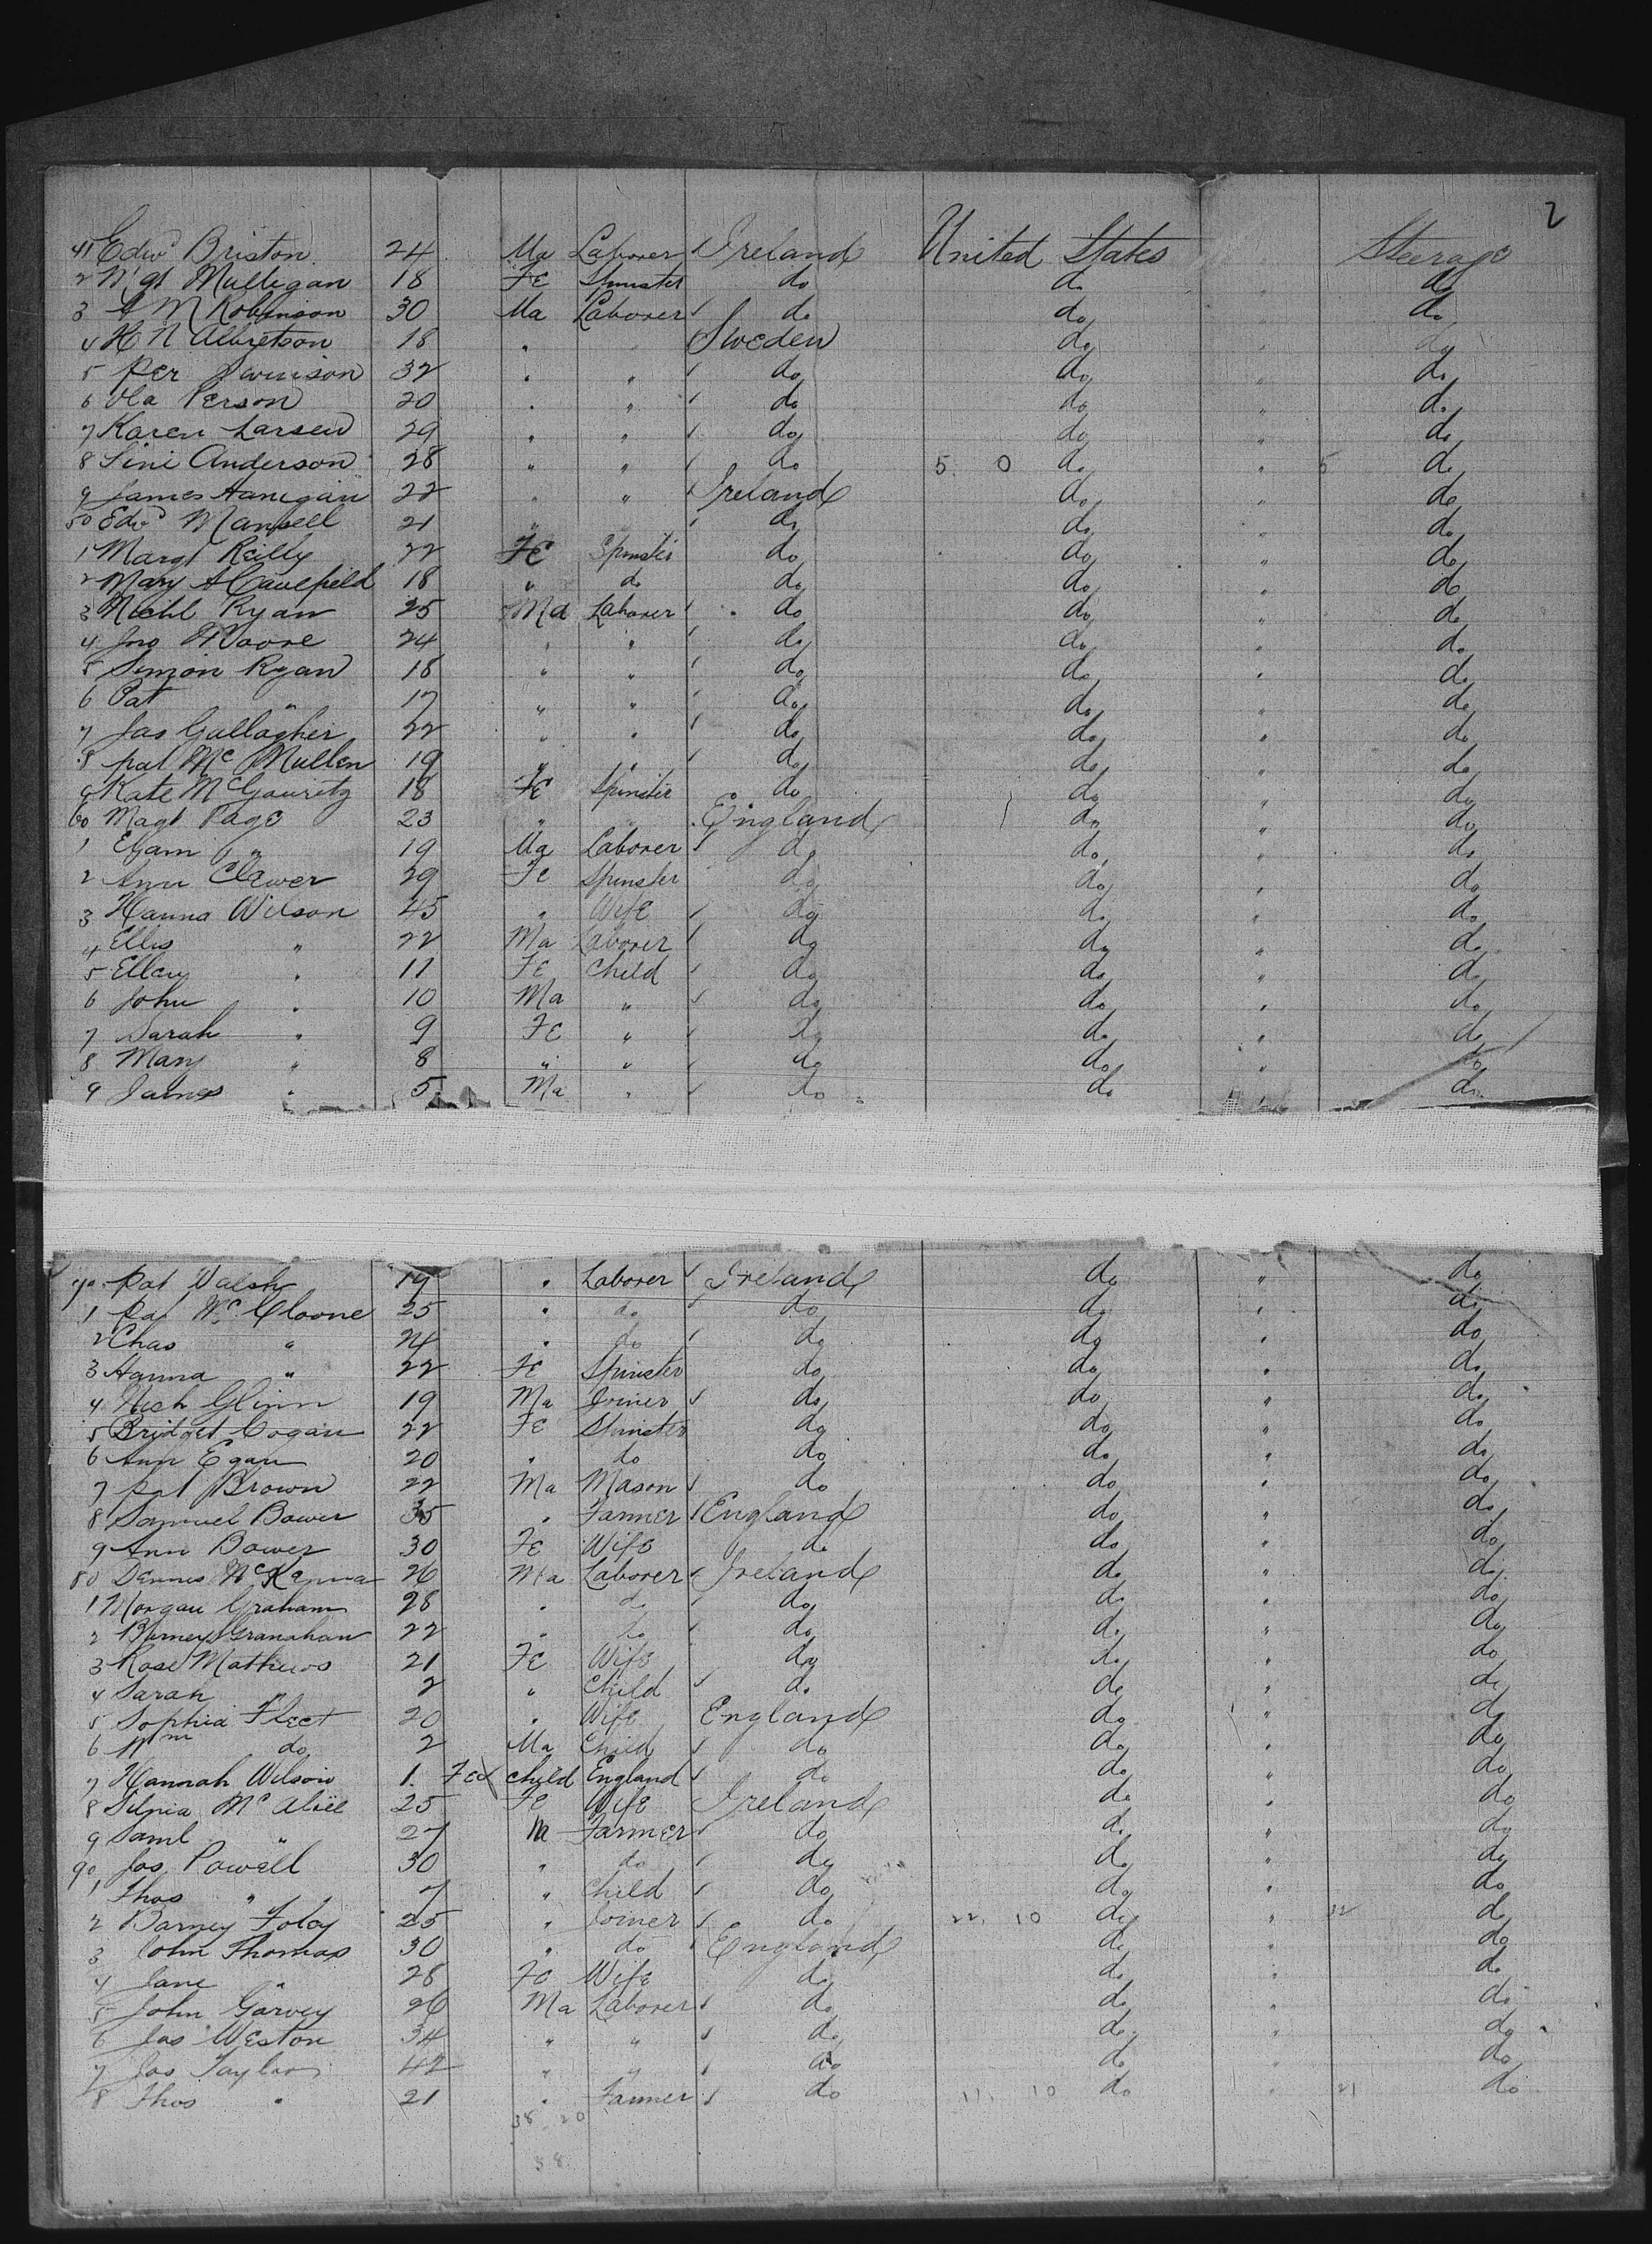 2
41 Edwd Briston 24 Ma Laborer Ireland United States Steerage
2 Mgt Mulligan 18 Fe Spinster do do do
3 A M Robinson 30 Ma Laborer do do do
4 H N Albretson 18 " " Sweden do do
5 Per 32 " " do do do
6 Ola Person 20 " " do do do
7 Karen Larsen 29 " " do do do
8 Sini Anderson 28 " " do 5 0 do " 5 do
9 James Hanigan 22 " " Ireland do " do
50 Edwd Mansell 21 " do do " do
1 Margt Reilly 22 Fe Spinster do do " do
2 Mary A Caulfield 18 " do do do " do
3 Michl Ryan 25 Ma Laborer do do " do
4 Jno Moore 24 " " do do " do
5 Simon Ryan 18 " " do do " do
6 Pat " 17 " " do do " do
7 Jas Gallagher 22 " " do do " do
8 Pat Mc Mullen 19 " " do do " do
9 Kate 18 Fe Spinster do do " do
60 Magt Page 23 " England do " do
1 " 19 Ma Laborer do do " do
2 Ann Clewer 29 Fe Spinster do do " do
3 Hanna Wilson 45 " Wife do do " do
4 Ellis " 22 Ma Laborer do do " do
5 Ellen " 11 Fe Child do do " do
6 John " 10 Ma " do do " do
7 Sarah " 9 Fe " do do " do
8 Mary " 8 " " do do " do
9 James " 5 Ma " do do " do
70 Pat Walsh 19 " Laborer Ireland do " do
1 Pat Mc Cloone 25 " do do do " do
2 Chas " 24 " do do do " do
3 Hanna " 22 Fe Spinster do do " do
4 Mich Glinn 19 Ma Joiner do do " do
5 Bridget Cogan 22 Fe Spinster do do " do
6 Ann Egan 20 " do do do " do
7 Pat Brown 22 Ma Mason do do " do
8 Samuel Bower 35 " Farmer England do " do
9 Ann Bower 30 Fe Wife do do " do
80 Dennis McKenna 26 Ma Laborer Ireland do " do
1 Morgan Graham 28 " do do do " do
2 Barney Granahan 22 " do do do " do
3 Rose Mathews 21 Fe Wife do do " do
4 Sarah " 2 " Child do do " do
5 Sophia Fleet 20 " Wife England do " do
6 Wm do 2 Ma Child do do " do
7 Hannah Wilson 1 Fe child England do do " do
8 Mc 25 Fe Wife Ireland do " do
9 Saml " 27 M Farmer do do " do
90 Jas Powell 30 " do do do " do
1 Thos " 7 " Child do do " do
2 Barney Foley 25 " Joiner do 22 10 do " 32 do
3 John Thomas 30 " do England do " do
4 Jane " 28 Fe Wife do do " do
5 John Garvey 26 Ma Laborer do do " do
6 Jas Weston 34 " " do do " do
7 Jas Taylor 42 " " do do " do
8 Thos " 21 " Farmer do 11 10 do " 21 do
38 20
38